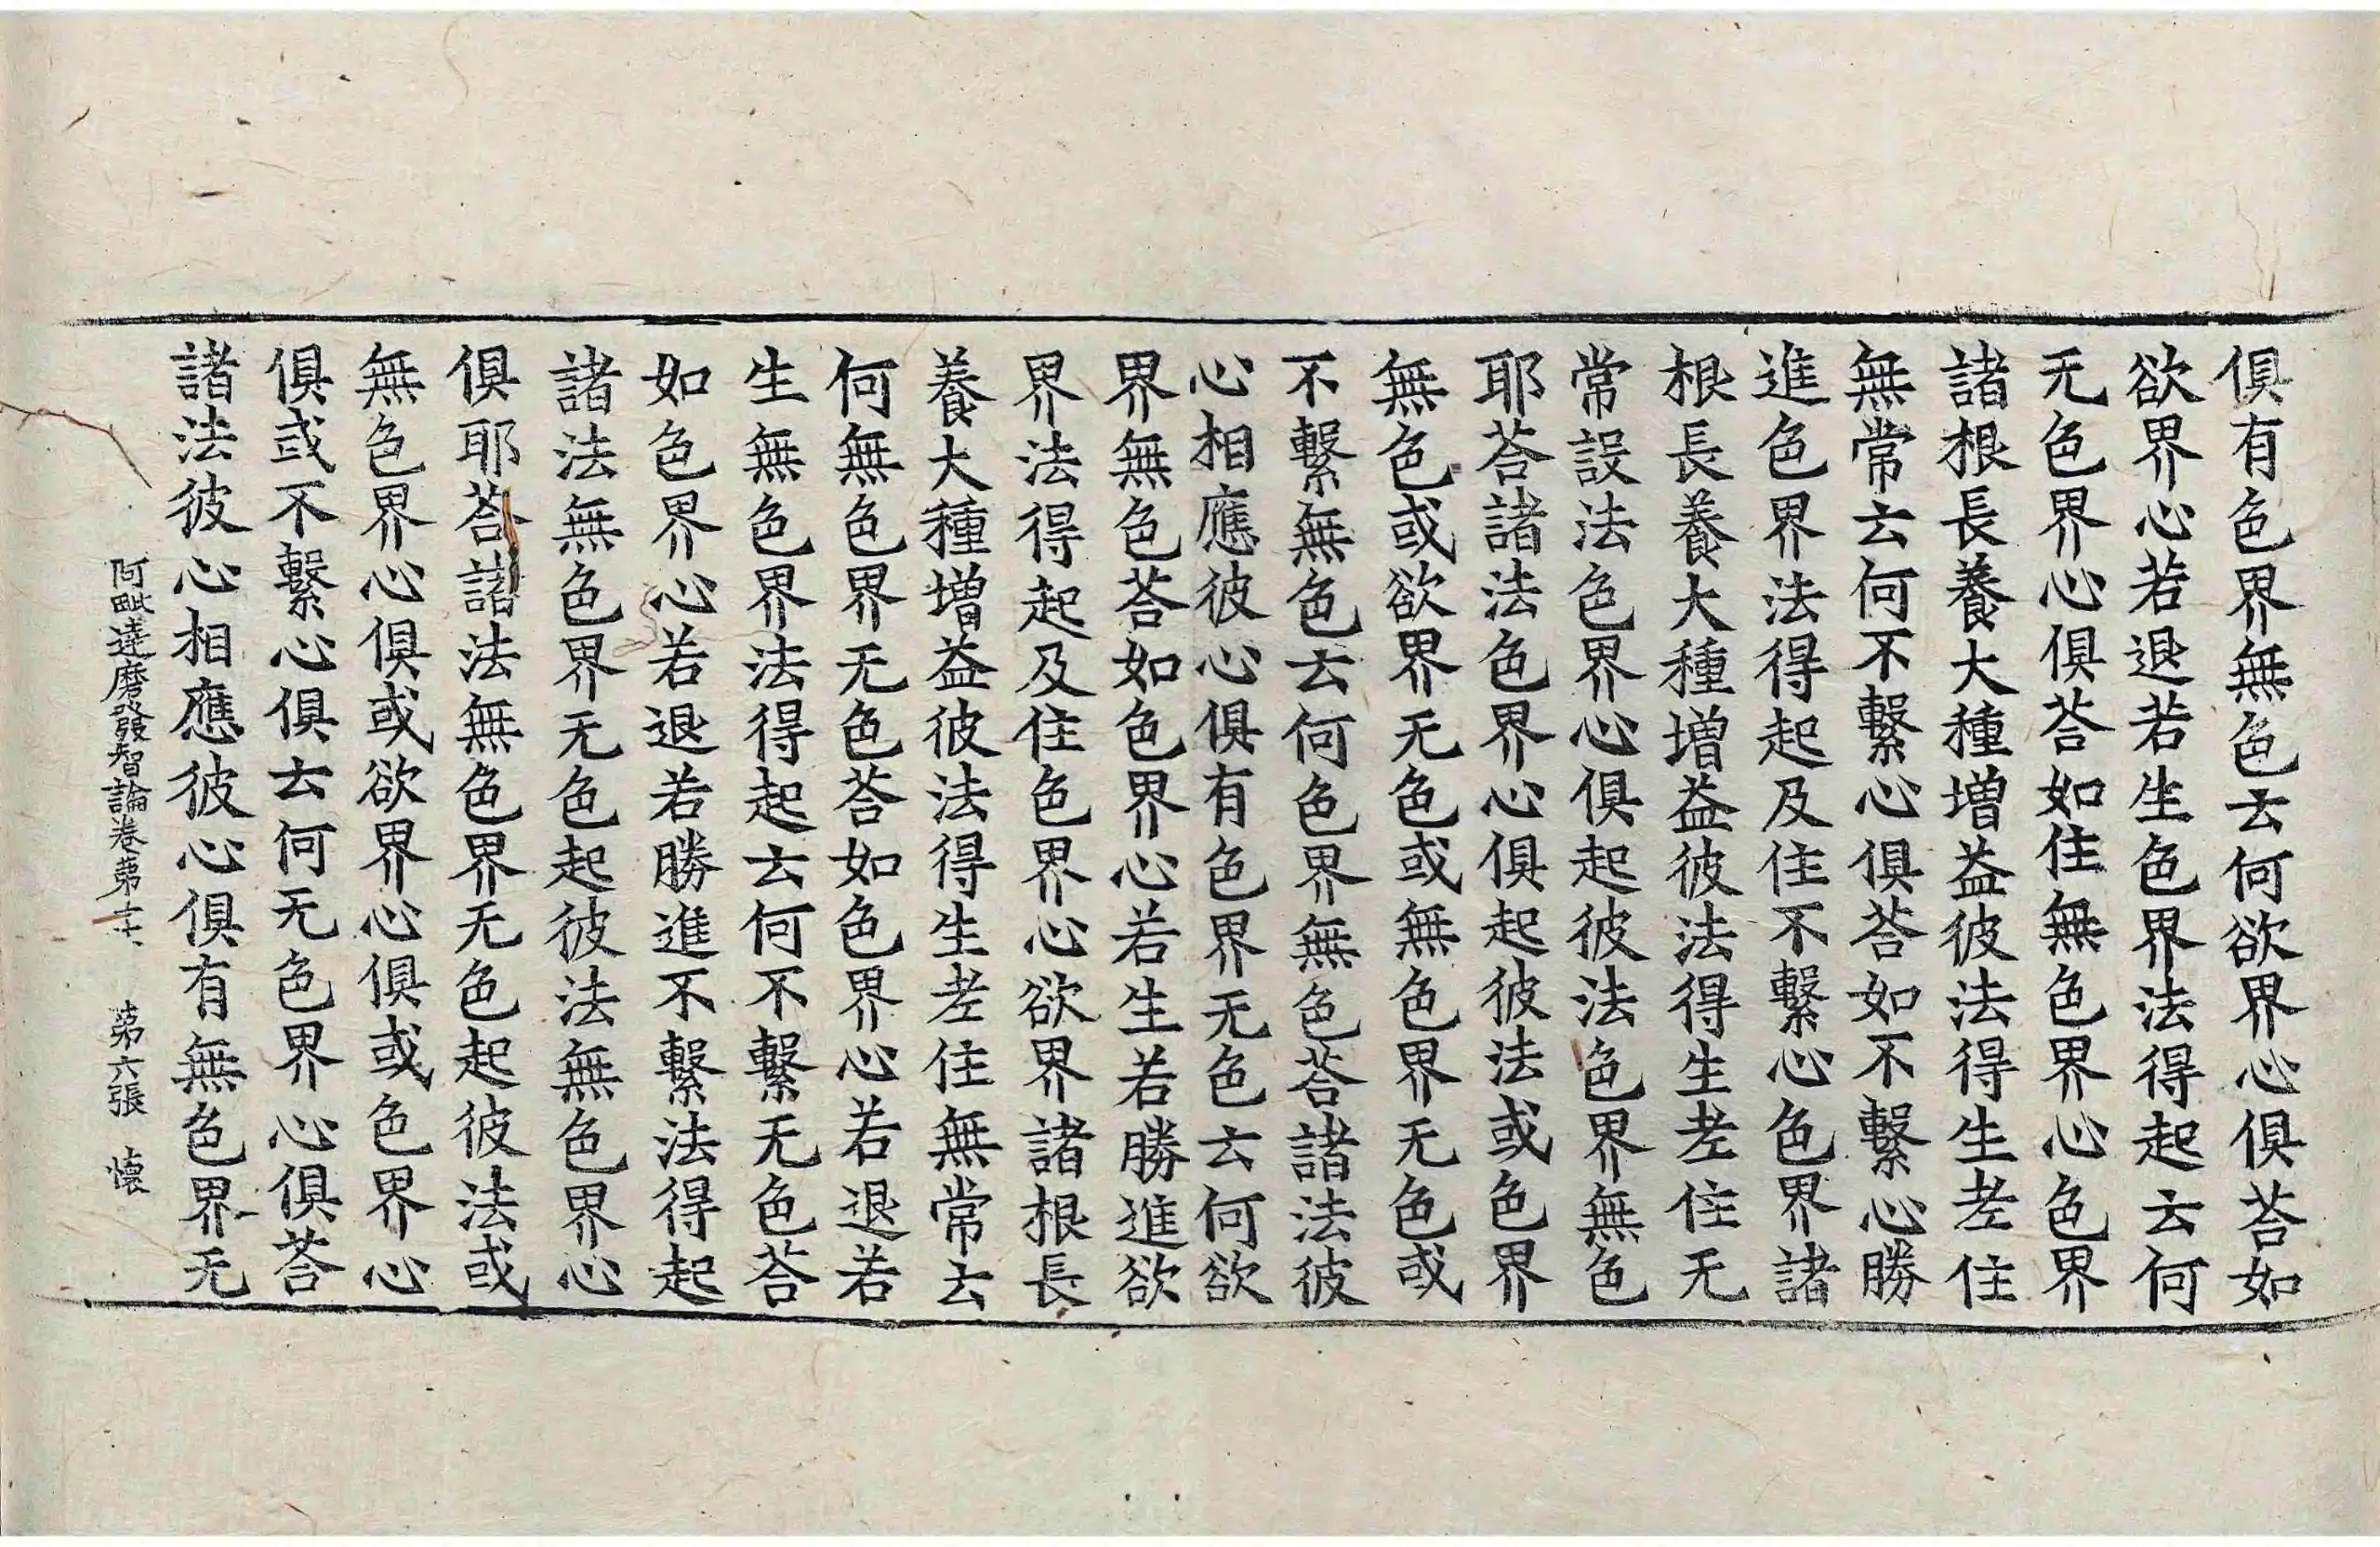 俱有色界無色云何欲界心俱荅如
欲界心若退若生色界法得起云何
无色界心俱荅如住無色界心色界
諸根長養大種增益彼法得生老住
無常云何不繫心俱荅如不繫心勝
進色界法得起及住不繫心色界諸
根長養大種增益彼法得生老住无
常設法色界心俱起彼法色界無色
耶荅諸法色界心俱起彼法或色界
無色或欲界无色或無色界无色或
不繫無色云何色界無色荅諸法彼
心相應彼心俱有色界无色云何欲
界無色荅如色界心若生若勝進欲
界法得起及住色界心欲界諸根長
養大種增益彼法得生老住無常云
何無色界无色荅如色界心若退若
生無色界法得起云何不繫无色荅
如色界心若退若勝進不繫法得起
諸法無色界无色起彼法無色界心
俱耶荅諸法無色界无色起彼法或
無色界心俱或欲界心俱或色界心
俱或不繫心俱云何无色界心俱荅
諸法彼心相應彼心俱有無色界无
阿毗達磨發智論卷第十六 第六張 懷